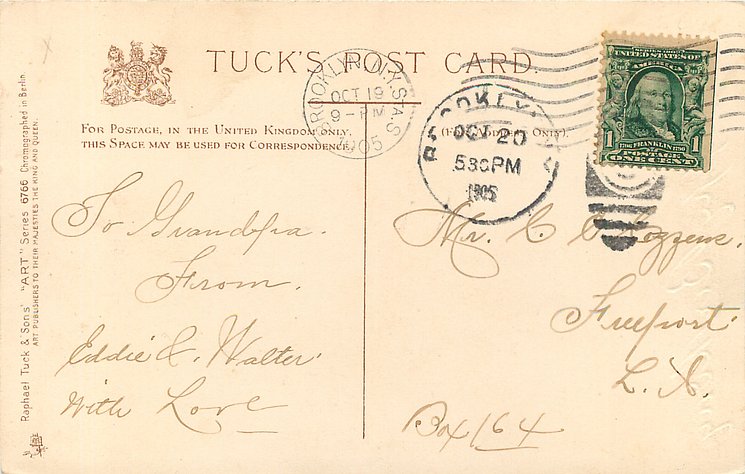 TUCK'S POST CARD.
BROOKLYN, N.Y. STA. S.
OCT 19
9 - PM
1905
BROOKLYN
OCT 20
530 PM
1905
SERIES 1902
UNITED STATES OF
AMERICA
1706 FRANKLIN 1790
1 POSTAGE 1
ONE CENT
FOR POSTAGE, IN THE UNITED KINGDOM ONLY,
THIS SPACE MAY BE USED FOR CORRESPONDENCE.
(FOR ADDRESS ONLY).
To Grandpa.
From.
Eddie & Walter
With Love
Mr. C C
Freeport
L. I.
Box 164
Raphael Tuck & Sons' "ART" Series 6766 Chromographed in Berlin
ART PUBLISHERS TO THEIR MAJESTIES THE KING AND QUEEN.